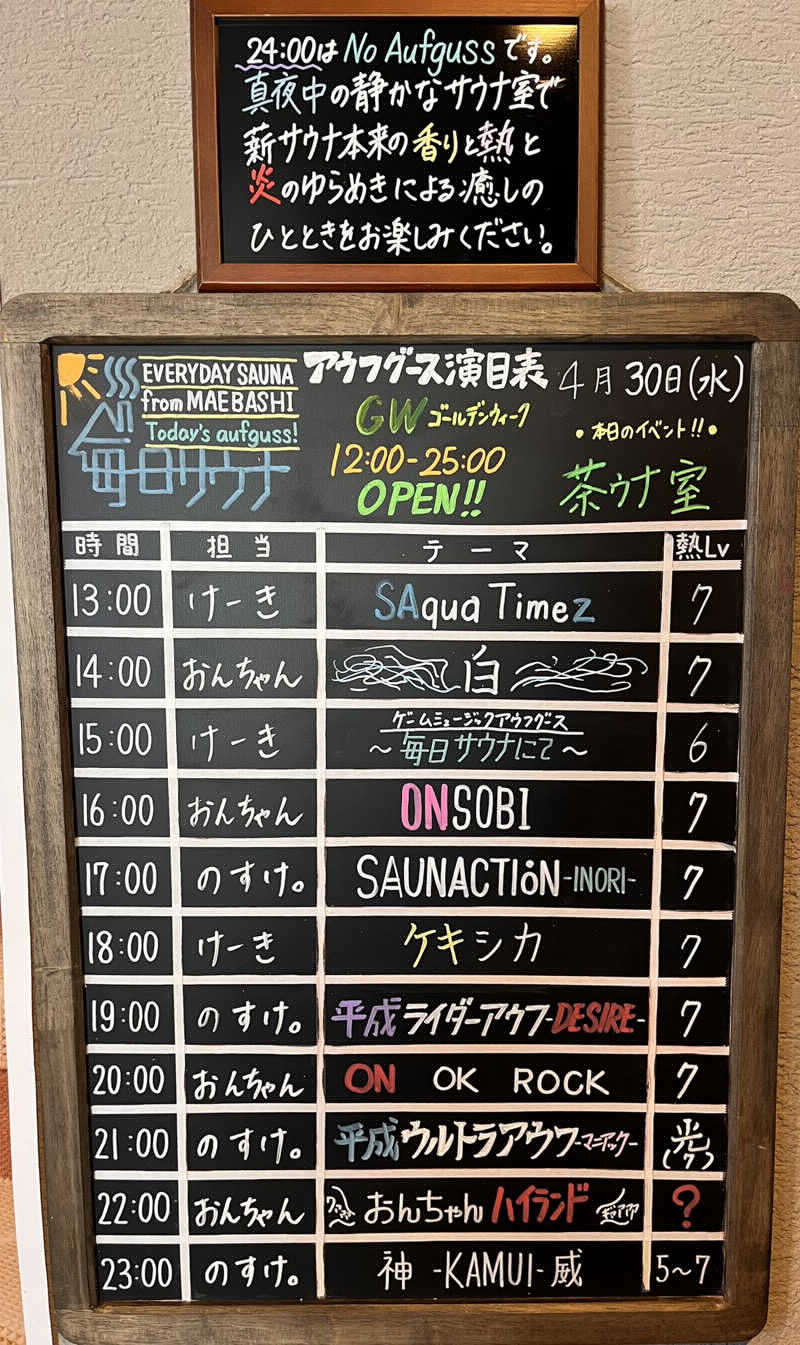 24:00は No Aufguss です。
真夜中の静かなサウナ室で
薪サウナ本来の香りと熱と
炎のゆらめきによる癒しの
ひとときをお楽しみください。
EVERYDAY SAUNA
from MAEBASHI
Today's aufguss!
毎日サウナ
アウフグース演目表
4月30日(水)
GW ゴールデンウィーク
12:00-25:00
OPEN!!
•本日のイベント!!•
茶ウナ室
時間 担当 テーマ 熱Lv
13:00 けーき SAqua Timez 7
14:00 おんちゃん 白 7
15:00 けーき ゲームミュージックアウフグース
〜毎日サウナにて〜 6
16:00 おんちゃん ONSOBI 7
17:00 のすけ。 SAUNACTION -INORI- 7
18:00 けーき ケキシカ 7
19:00 のすけ。 平成ライダーアウフ-DESIRE- 7
20:00 おんちゃん ON OK ROCK 7
21:00 のすけ。 平成ウルトラアウフ-マニアック- 光(7)
22:00 おんちゃん おんちゃんハイランド ?
23:00 のすけ。 神 -KAMUI- 威 5〜7